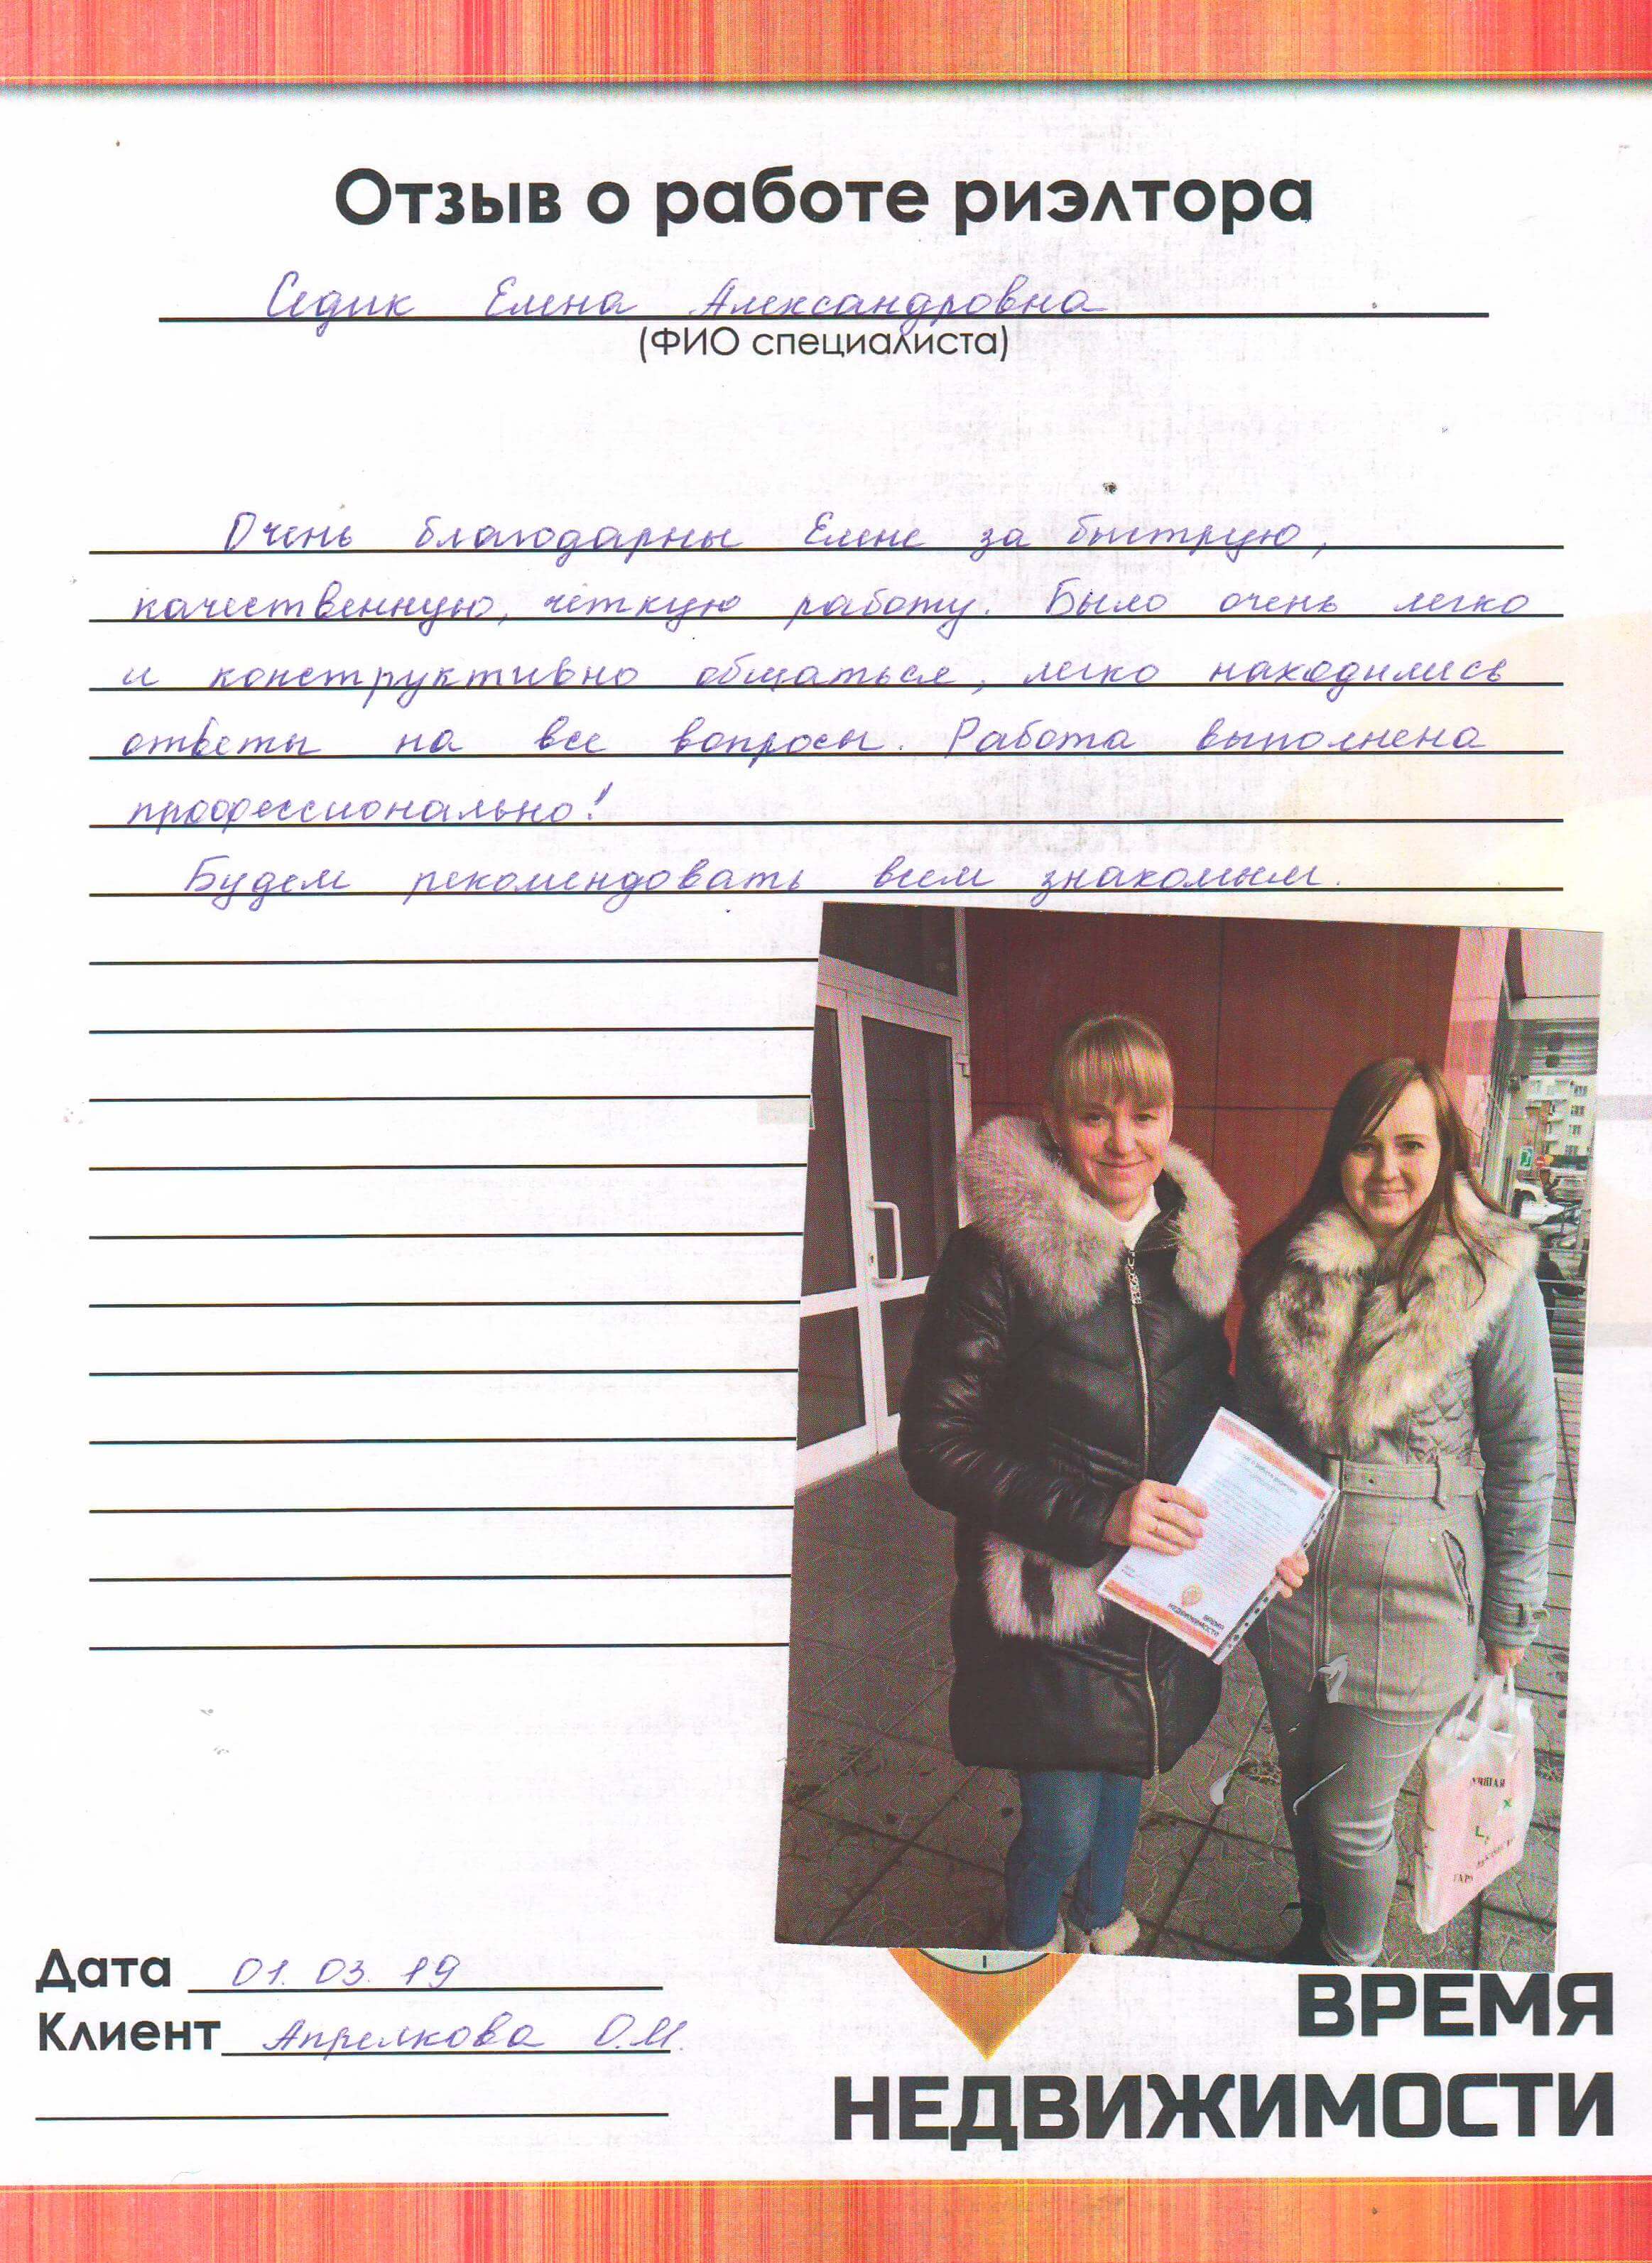 Отзыв о работе риэлтора
Седик Елена Александровна
(ФИО специалиста)
Очень благодарны Елене за быструю,
качественную, четкую работу. Было очень легко
и конструктивно общаться, легко находились
ответы на все вопросы. Работа выполнена
профессионально!
Будем рекомендовать всем знакомым.
Дата 01.03.19
Клиент Апрелкова О.М.
ВРЕМЯ
НЕДВИЖИМОСТИ